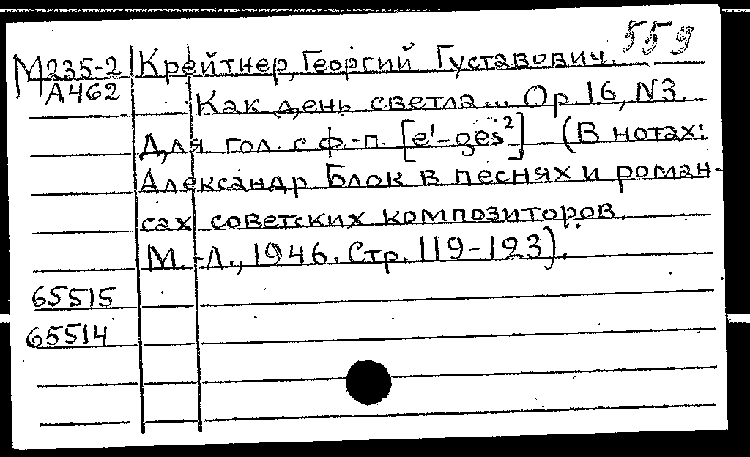 559
М235-2 Крейтнер, Георгий Густавович.
А462 Как день светла... Op. 16, N3.
Для гол. с ф-п. [e¹-ges²] (В нотах:
Александр Блок в песнях и роман-
сах советских композиторов.
М.-Л., 1946. Стр. 119-123).
65515
65514